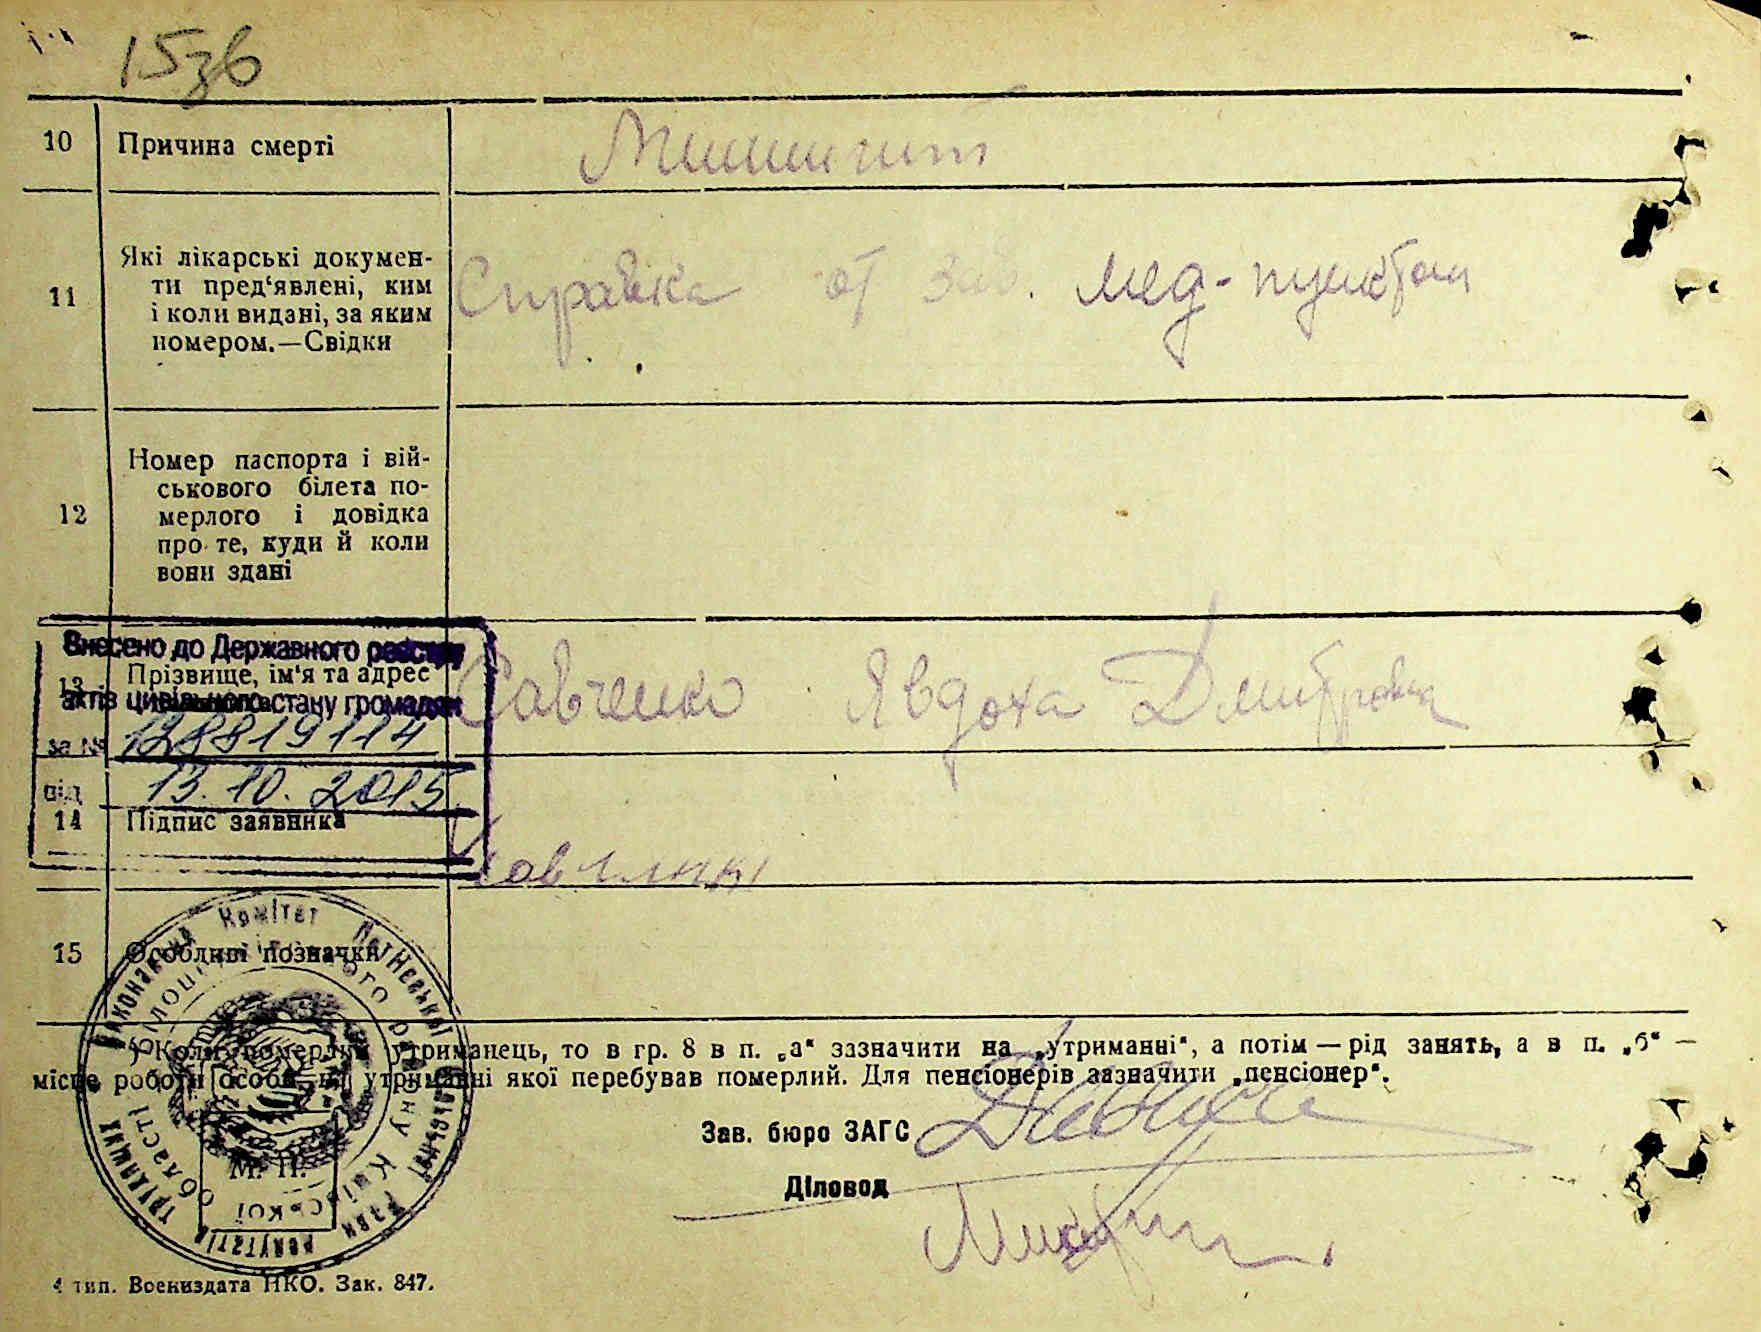 15зв
10 Причина смерті
Менингит
11 Які лікарські докумен-
ти пред‘явлені, ким
і коли видані, за яким
номером.—Свідки
Справка от зав. мед-пунктом
12 Номер паспорта і вій-
ськового білета по-
мерлого і довідка
про те, куди й коли
вони здані
Внесено до Державного реєстру
13 Прізвище, ім'я та адрес
Савченко Явдоха Дмитровна
актів цивільного стану громадян
за № 128819114
від 13.10.2015
14 Підпис заявника
15 Особливі позначки
Виконавчий Комітет
Білоцерківського району Київської області
депутатів трудящих
) Коли померлий утриманець, то в гр. 8 в п. „а“ зазначити на „утриманні“, а потім — рід занять, а в п. „б“ —
місце роботи особи, на утриманні якої перебував померлий. Для пенсіонерів зазначити „пенсіонер“.
Зав. бюро ЗАГС
Діловод
М. П.
4 тип. Воениздата НКО. Зак. 847.